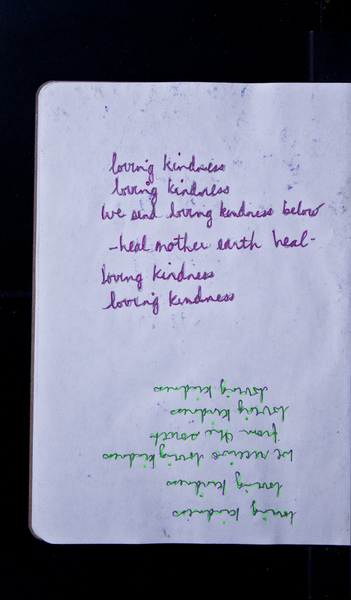 loving kindness
loving kindness
we send loving kindness below
-heal mother earth heal-
loving kindness
loving kindness
loving kindness
loving kindness
we receive loving kindness
from the south
loving kindness
loving kindness